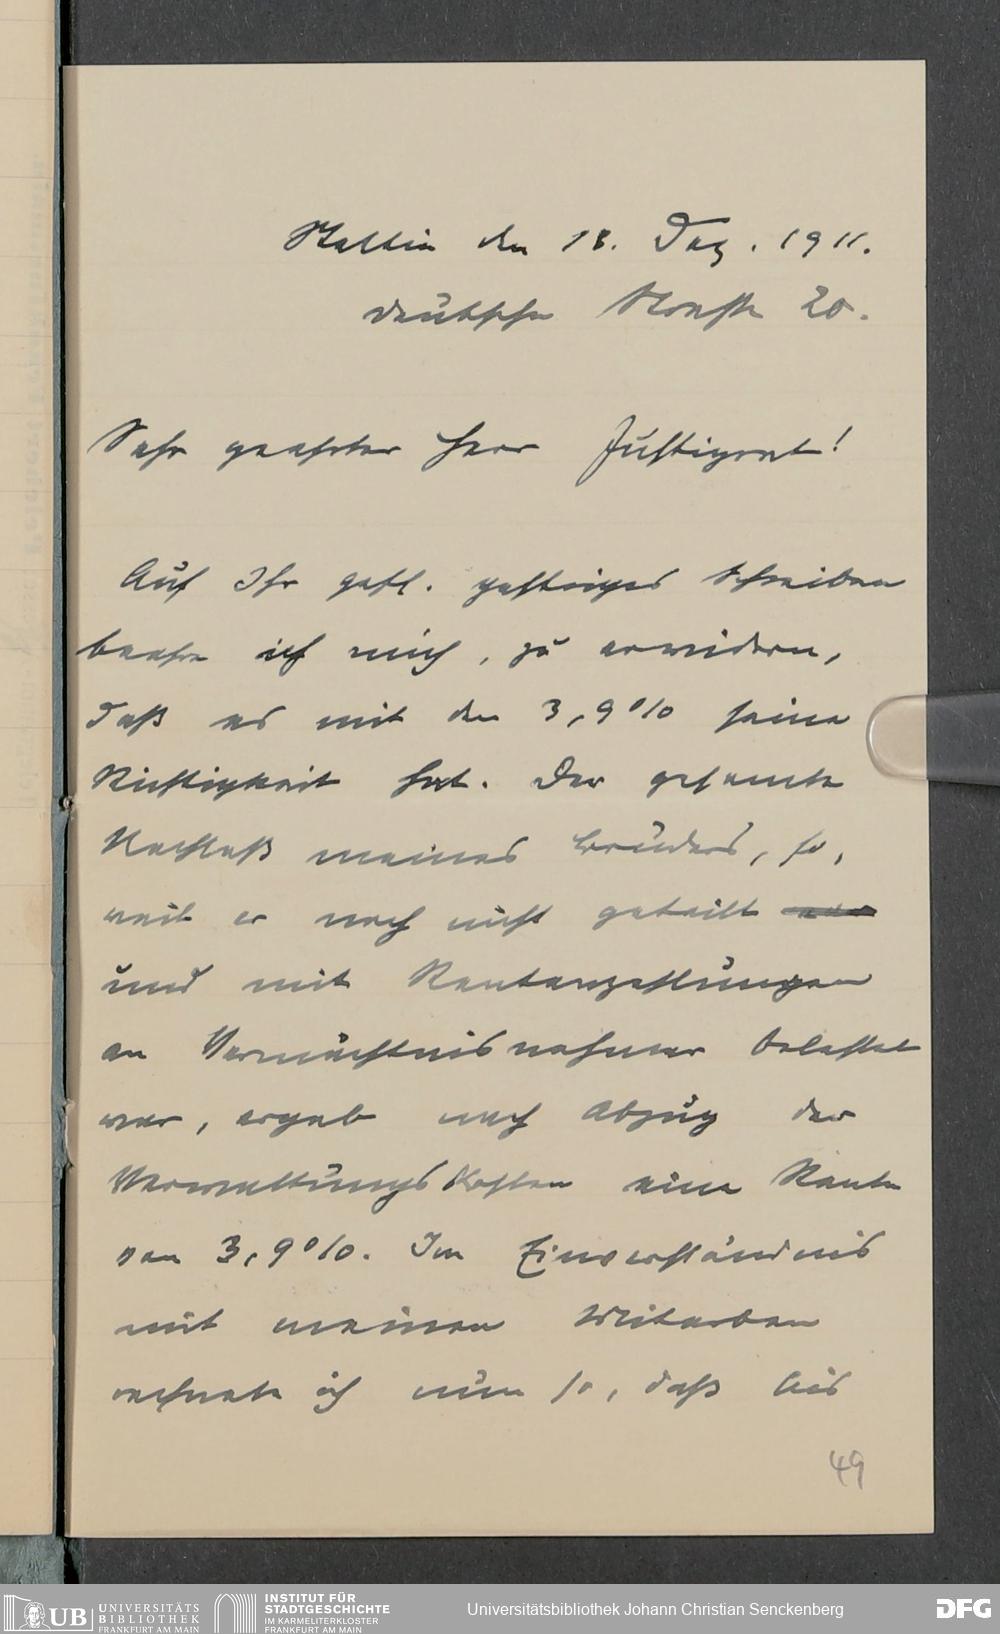 Stettin den 18. Dez. 1911.
Deutsche Straße 20.
Sehr geehrter Herr Justizrat!
Auf Ihr gefl. gestriges Schreiben
beehre ich mich, zu erwidern,
daß es mit den 3,9% seine
Richtigkeit hat. Der gesamte
Nachlaß meines Bruders, so,
weit er noch nicht geteilt war
und mit Rentenzahlungen
an Vermächtnisnehmer belastet
war, ergab nach Abzug der
Verwaltungskosten eine Rente
von 3,9%. Im Einverständnis
mit meinen Miterben
rechnete ich nun so, daß bis
49
UB UNIVERSITÄTS
BIBLIOTHEK
FRANKFURT AM MAIN
INSTITUT FÜR
STADTGESCHICHTE
IM KARMELITERKLOSTER
FRANKFURT AM MAIN
Universitätsbibliothek Johann Christian Senckenberg
DFG